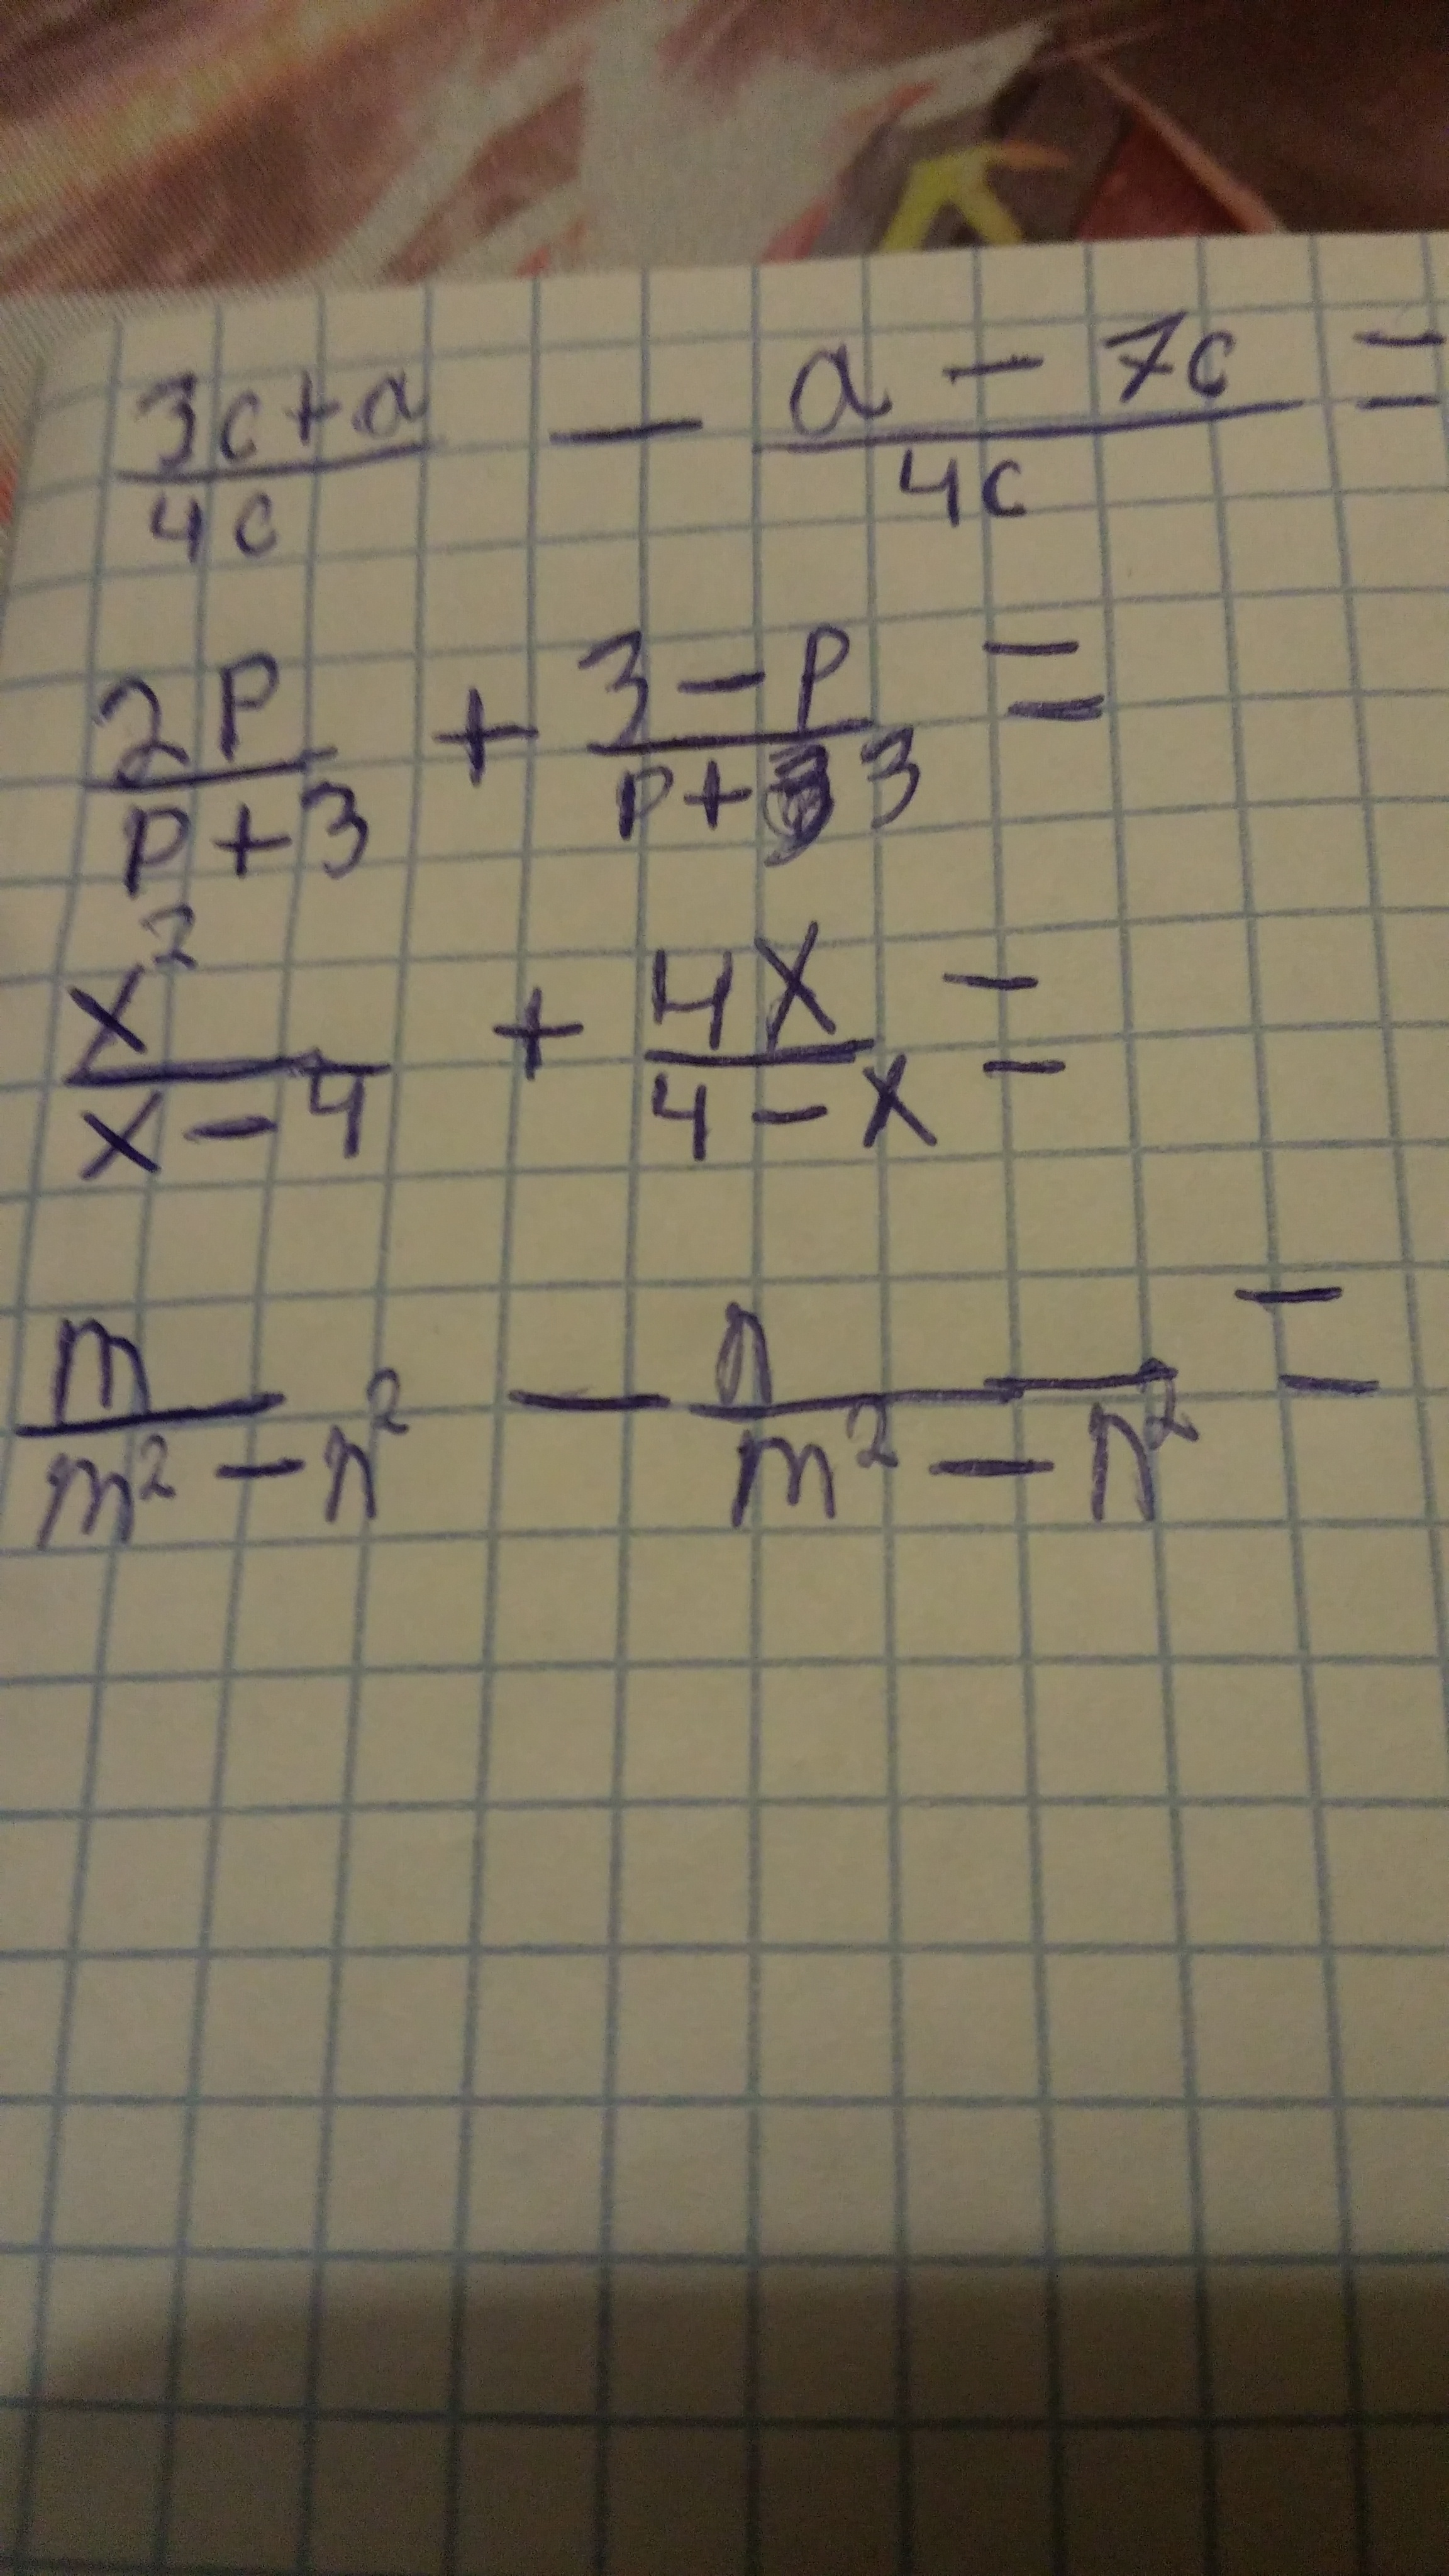 (3c+a)/(4c) - (a-7c)/(4c) =
(2p)/(p+3) + (3-p)/(p+3) =
(x²)/(x-4) + (4x)/(4-x) =
(m)/(m²-n²) - (n)/(m²-n²) =